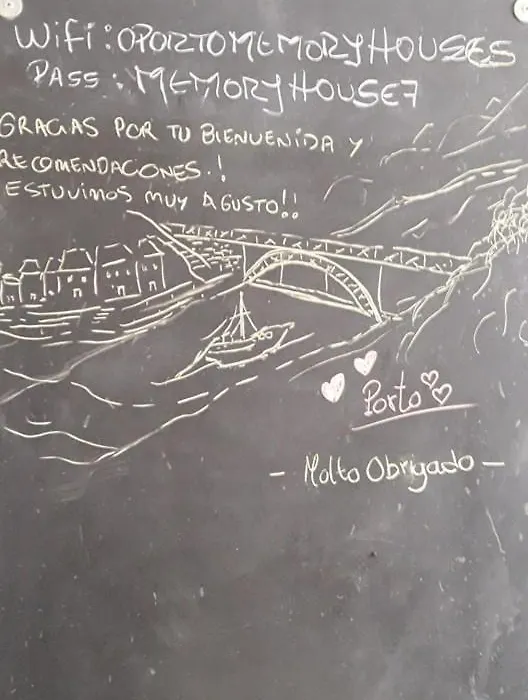 Wifi: OPORTOMEMORYHOUSES
PASS: MEMORYHOUSE7
GRACIAS POR TU BIENVENIDA Y
RECOMENDACIONES.!
ESTUVIMOS MUY AGUSTO!!
Porto
- Molto Obrigado -